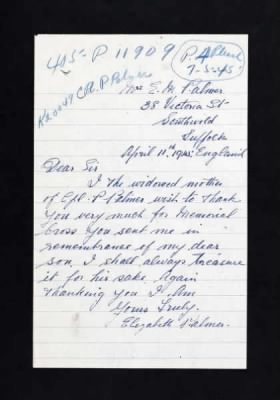 405-P 11909
P.A. 
7-5-45
Cpl. P. Palmer
Mrs E. M. Palmer
38 Victoria St
Southwold
Suffolk
April 11th 1945 England
Dear Sir
I the widowed mother
of Cpl. P Palmer wish to thank
you very much for Memorial
Cross you sent me in
remembrance of my dear
son. I shall always treasure
it for his sake. Again
thanking you I Am
Yours Truly.
Elizabeth Palmer.